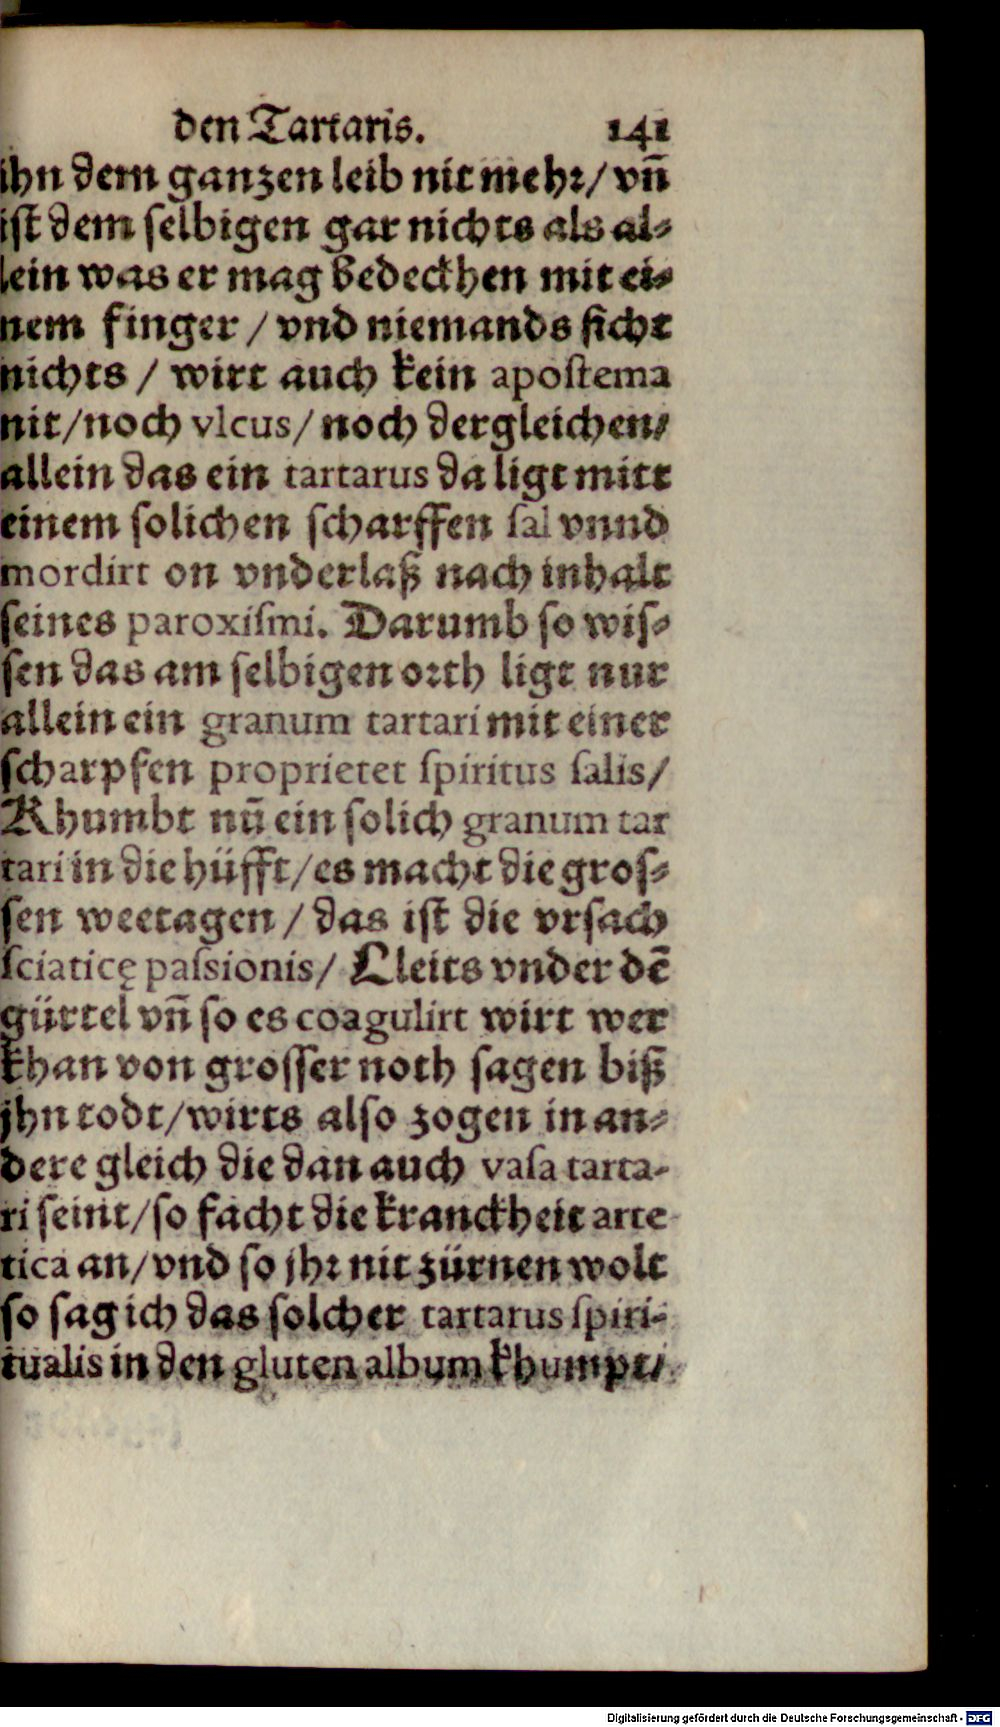 den Tartaris. 141
ihn dem ganzen leib nit mehr/ vñ
ist dem selbigen gar nichts als al⸗
lein was er mag bedeckhen mit ei⸗
nem finger / vnd niemands sicht
nichts / wirt auch kein apostema
nit/noch vlcus/ noch dergleichen/
allein das ein tartarus da ligt mitt
einem solichen scharffen sal vnnd
mordirt on vnderlaß nach inhalt
seines paroxiſmi. Darumb so wiſ⸗
sen das am selbigen orth ligt nur
allein ein granum tartari mit einer
scharpfen proprietet ſpiritus ſalis/
Khumbt nũ ein solich granum tar
tari in die hüfft/es macht die groſ⸗
sen weetagen / das ist die vrsach
ſciaticę paſsionis/ Lleits vnder dẽ
gürtel vñ so es coagulirt wirt wer
khan von grosser noth sagen biß
jhn todt/wirts also zogen in an⸗
dere gleich die dan auch vaſa tarta-
ri seint/so facht die kranckheit arte
tica an/vnd so jhr nit zürnen wolt
so sag ich das solcher tartarus ſpiri-
tualis in den gluten album khumpt/
Digitalisierung gefördert durch die Deutsche Forschungsgemeinschaft - DFG